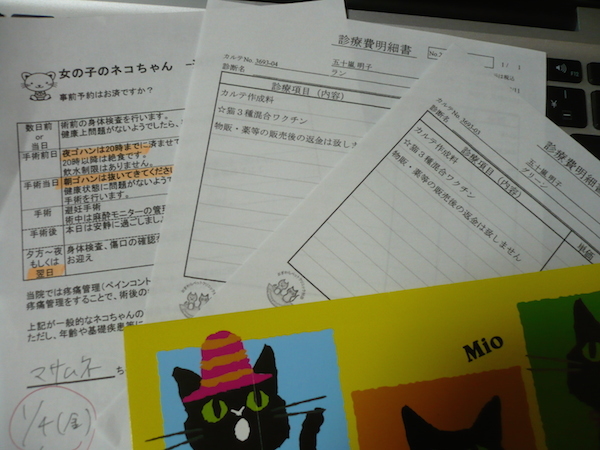 女の子のネコちゃん
事前予約はお済ですか？
数日前
or
当日
術前の身体検査を行います。
健康上問題がないようでしたら、
手術前日
夜ゴハンは20時までに済ませて
20時以降は絶食です。
飲水制限はありません。
手術当日
朝ゴハンは抜いてきてください
健康状態に問題がないようで
手術を行います。
手術
避妊手術
術中は麻酔モニターの管理
手術後
本日は安静に過ごしま
夕方～夜
もしくは
翌日
身体検査、傷口の確認
お迎え
当院では疼痛管理（ペインコント
疼痛管理をすることで、術後の
上記が一般的なネコちゃんの
ただし、年齢や基礎疾患等に
マサムネ ち
1/4(金)
診療費明細書
1/ 1
カルテNo 3693-04
五十嵐 明子
診断名
ラン
診療項目（内容）
カルテ作成料
☆猫３種混合ワクチン
物販・薬等の販売後の返金は致し
診療費明細
カルテNo 3693-03
五十嵐明子
診断名
診療項目（内容）
カルテ作成料
☆猫３種混合ワクチン
物販・薬等の販売後の返金は致しません
単価
Mio